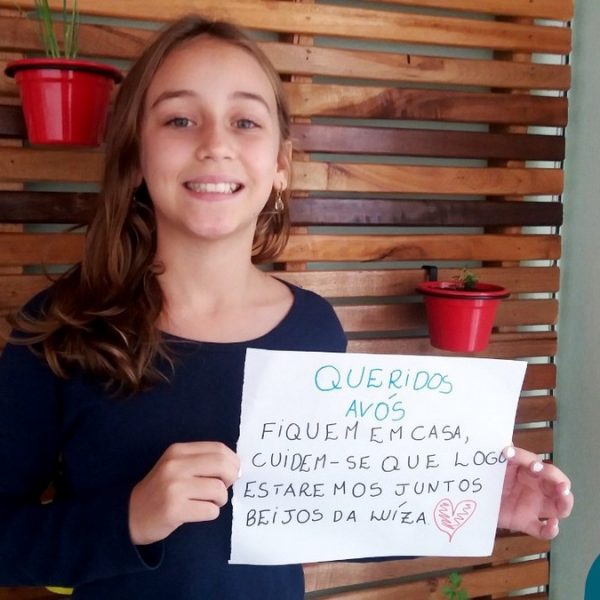 QUERIDOS
AVÓS
FIQUEM EM CASA,
CUIDEM-SE QUE LOGO
ESTAREMOS JUNTOS
BEIJOS DA LUÍZA